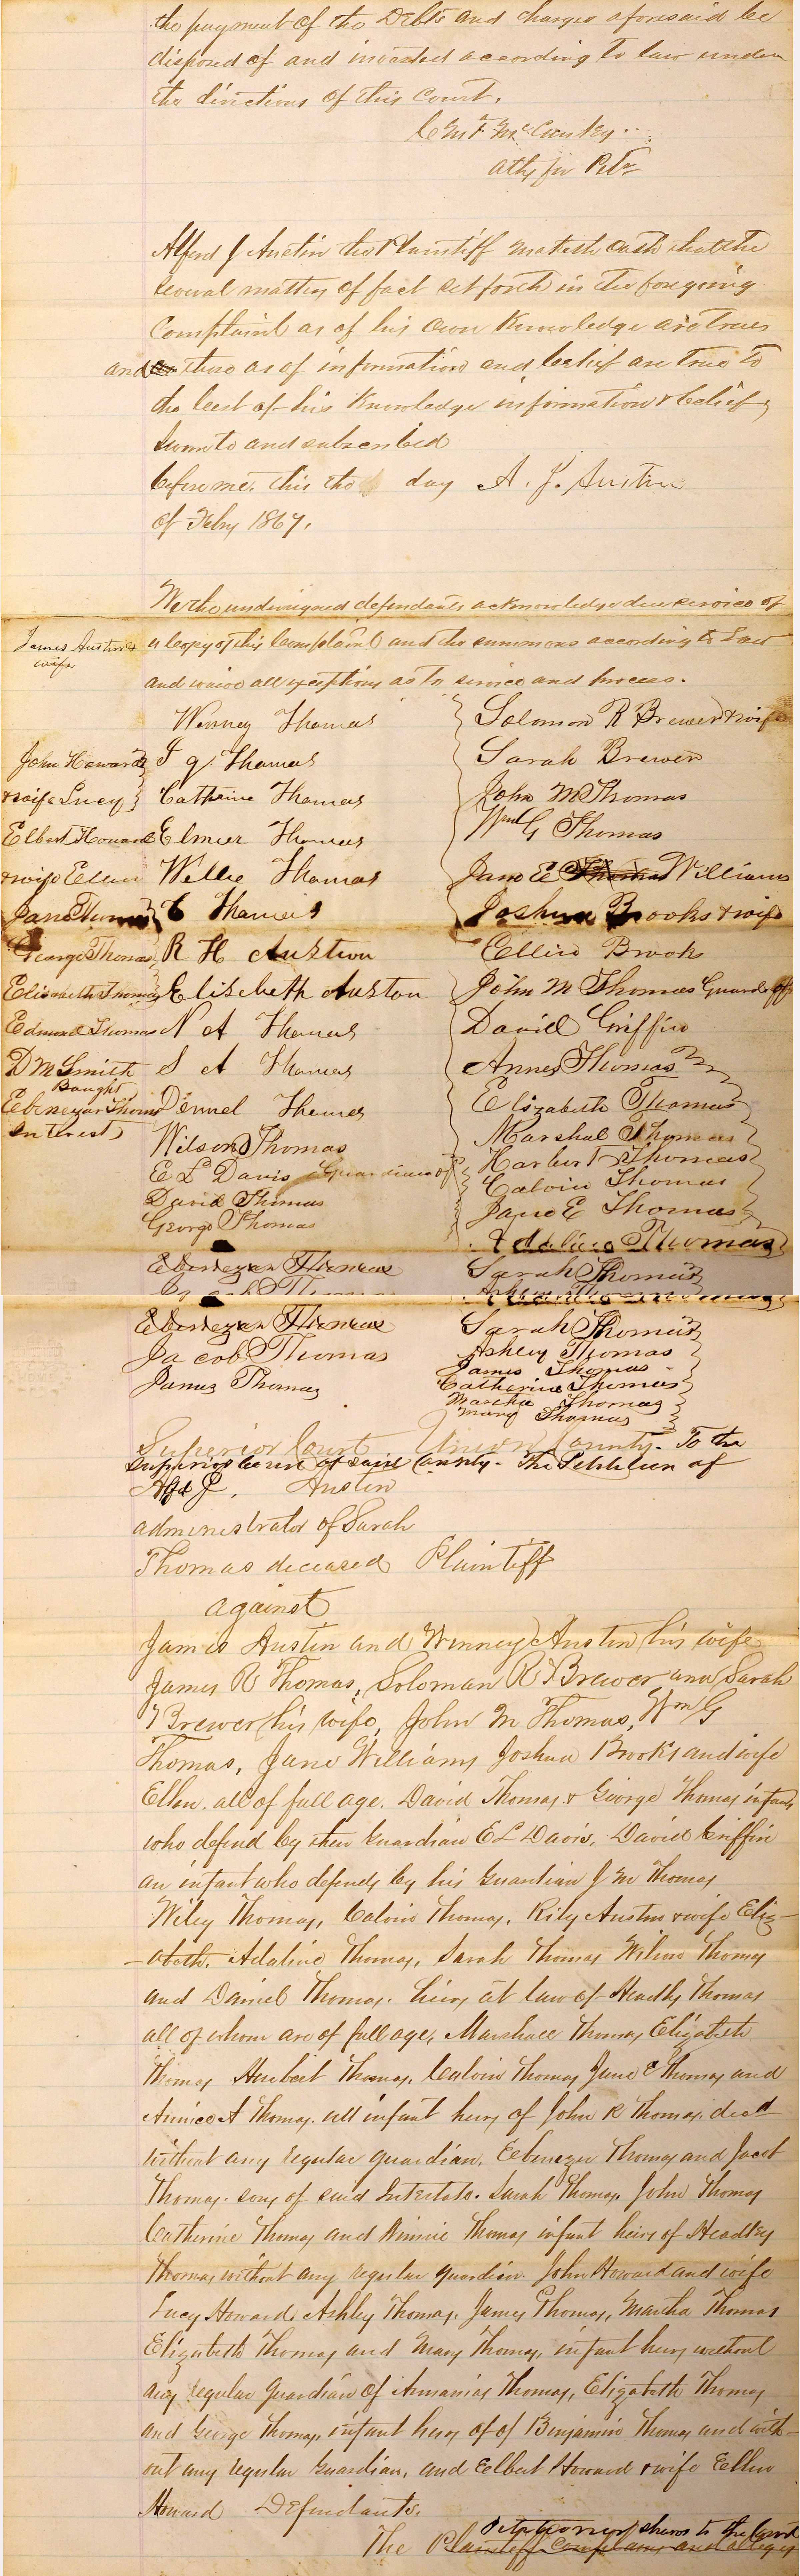 the payment of the Debts and charges aforesaid be
disposed of and invested according to law under
the directions of this Court.
atty for Petr
Alfred J Austin the Plaintiff maketh oath that the
several matters of fact set forth in the foregoing
Complaint as of his own Knowledge are true
and those as of information and belief are true to
the best of his Knowledge information & belief
Sworn to and subscribed
before me, this the day A. J. Austin
of Feby 1867.
We the undersigned defendants acknowledge due service of
James Austin &
wife
a copy of this Complaint and the summons according to Law
and waive all exceptions as to service and process.
Winney Thomas
Solomon R Brewer & wife
John Howard
Thomas
Sarah Brewer
& wife Lucy
Catherine Thomas
John M Thomas
Elbert Howard
Elmier Thomas
Wm G Thomas
& wife Ellen
Willie Thomas
Jane E Thomas Williams
Jane Thomas
C Thomas
Joshua Brooks & wife
George Thomas
R H Austion
Ellin Brooks
Elizabeth Thomas
Elisebeth Auston
John M Thomas Guard of
Edmund Thomas
N A Thomas
David Griffin
D M Smith
S A Thomas
Annes Thomas
Bought
Ebenezar Thoms
Dennel Thomes
Elizabeth Thomas
Interest
Wilson Thomas
Marshal Thomas
E L Davis Guardian of
Harbert Thomas
David Thomas
Calvin Thomas
George Thomas
Jane E Thomas
Adaline Thomas
Ebenezer Thomas
Sarah Thomas
Ebenezer Thomas
Sarah Thomas
Jacob Thomas
Ashley Thomas
James Thomas
James Thomas
Catherine Thomas
Martha Thomas
Mary Thomas
Superior Court Union County - To the
Superior Court of said County - The Petition of
Alfd J. Austin
administrator of Sarah
Thomas deceased Plaintiff
against
James Austin and Winney Austin his wife
James R Thomas, Soloman R Brewer and Sarah
Brewer his wife, John M Thomas, Wm G
Thomas, Jane Williams Joshua Brooks and wife
Ellen. all of full age. David Thomas & George Thomas infants
who defend by their Guardian E L Davis, David Griffin
an infant who defends by his Guardian J M Thomas
Wiley Thomas, Calvin Thomas, Rily Austin & wife Eliz-
-abeth. Adaline Thomas, Sarah Thomas Wilson Thomas
and Daniel Thomas. heirs at law of Headly Thomas
all of whom are of full age, Marshall Thomas Elizabeth
Thomas Huebert Thomas, Calvin Thomas Jane E Thomas and
Annice A Thomas. all infant heirs of John R Thomas, dead
without any regular guardian. Ebenezer Thomas and Jacob
Thomas. sons of said Intestate. Sarah Thomas, John Thomas
Catherine Thomas and Winnie Thomas infant heirs of Headley
Thomas without any regular guardian. John Howard and wife
Lucy Howard, Ashley Thomas. James Thomas, Martha Thomas
Elizabeth Thomas and Mary Thomas, infant heirs without
any regular Guardian of Annanias Thomas, Elizabeth Thomas
and George Thomas, infant heirs of of Benjamin Thomas and with-
out any regular Guardian, and Elbert Howard & wife Ellen
Howard Defendants.
Petitioner shews to the Court
The Plaintiff complains and alleges